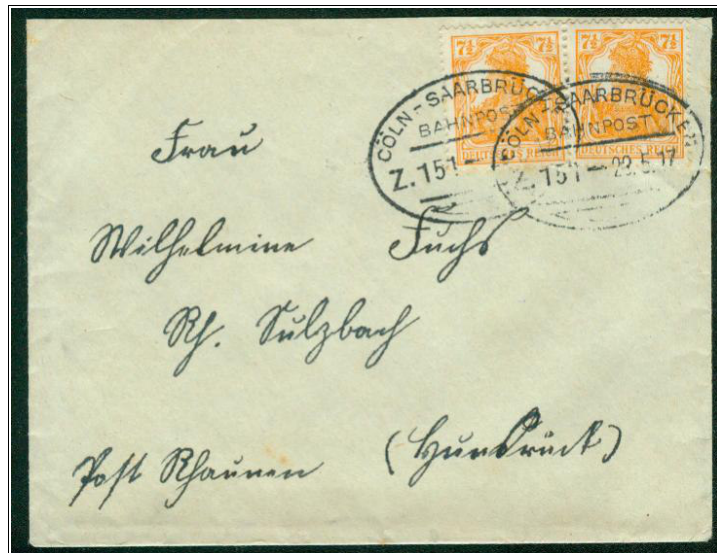 7½ 7½ 7½ 7½
DEUTSCHES REICH DEUTSCHES REICH
CÖLN - SAARBRÜCKEN
BAHNPOST
Z. 151 -
CÖLN - SAARBRÜCKEN
BAHNPOST
Z. 151 - 29.5.17
Frau
Wilhelmine Fuchs
Rh. Sulzbach
Post Rhaunen (Hunsrück)